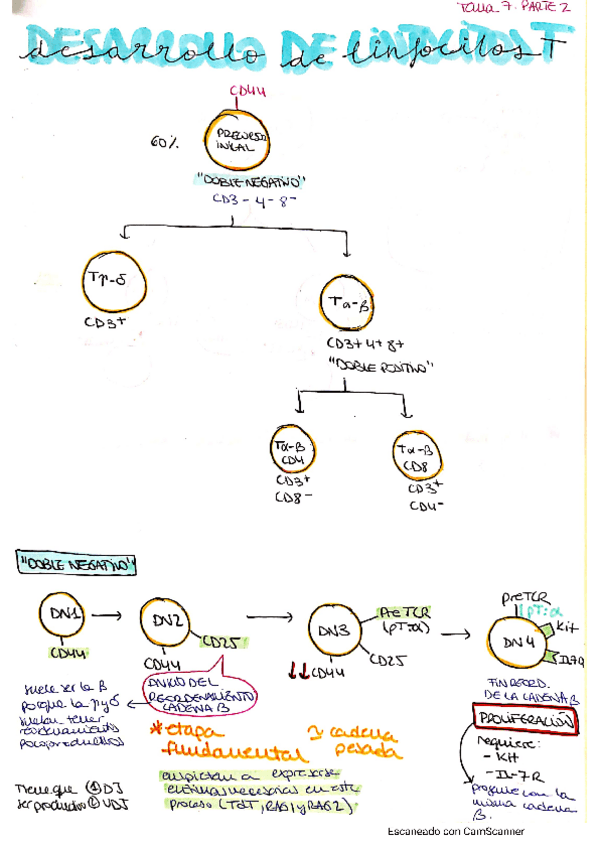 Tema 7. PARTE 2
DESARROLLO DE LINFOCITOS T
desarrollo de linfocitos T
CD44
60%
PRECURSOR
INICIAL
"DOBLE NEGATIVO"
CD3 - 4 - 8 -
Tγ-δ
CD3+
Tα-β
CD3+ 4+ 8+
"DOBLE POSITIVO"
Tα-β
CD4
CD3+
CD8-
Tα-β
CD8
CD3+
CD4-
"DOBLE NEGATIVO"
DN1
CD44
DN2
CD25
CD44
DN3
PreTCR
(pT:α)
CD25
↓↓CD44
DN4
PreTCR
(pT:α
Kit
IL7R
INICIO DEL
REORDENAMIENTO
CADENA β
suele ser la β
porque la γ y δ
suelen tener
reordenamientos
poco productivos
*etapa
fundamental
cadena
pesada
FIN REORD.
DE LA CADENA β
PROLIFERACIÓN
requiere:
- Kit
- IL-7R
con la
misma cadena
β.
Tiene que ① DJ
ser productivo ② VDJ
empiezan a expresarse
enzimas necesarias en este
proceso (TdT, RAG1 y RAG2)
Escaneado con CamScanner